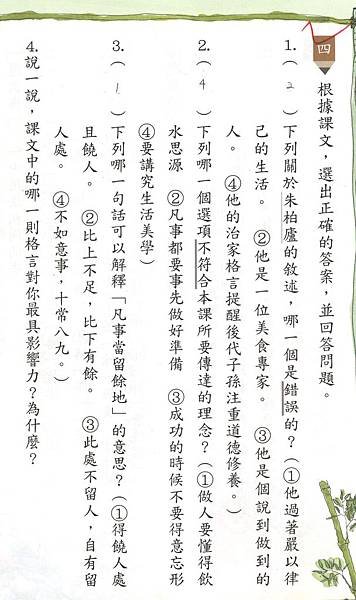 四
根據課文，選出正確的答案，並回答問題。
1.（2）下列關於朱柏廬的敘述，哪一個是錯誤的？（①他過著嚴以律
己的生活。　②他是一位美食專家。　③他是個說到做到的
人。　④他的治家格言提醒後代子孫注重道德修養。）
2.（4）下列哪一個選項不符合本課所要傳達的理念？（①做人要懂得飲
水思源　②凡事都要事先做好準備　③成功的時候不要得意忘形
④要講究生活美學）
3.（1）下列哪一句話可以解釋「凡事當留餘地」的意思？（①得饒人處
且饒人。　②比上不足，比下有餘。　③此處不留人，自有留
人處。　④不如意事，十常八九。）
4.說一說，課文中的哪一則格言對你最具影響力？為什麼？